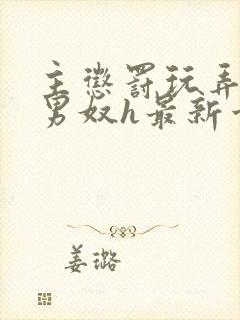 主惩罚玩弄
男奴h最新
姜璐